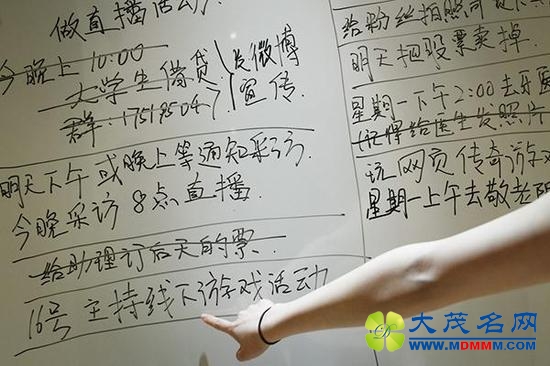 做直播活动.
今晚上 10:00
大学生借贷
群:17519504
发微博
宣传.
明天下午或晚上等通知采访.
今晚采访8点直播
给助理订后天的票.
16号主持线下游戏活动
给粉丝拍照
明天把股票卖掉.
星期一下午2:00去牙医
(记得给医生发照片
玩网页传奇游戏
星期一上午去敬老院
大茂名网
WWW.MDMMM.COM